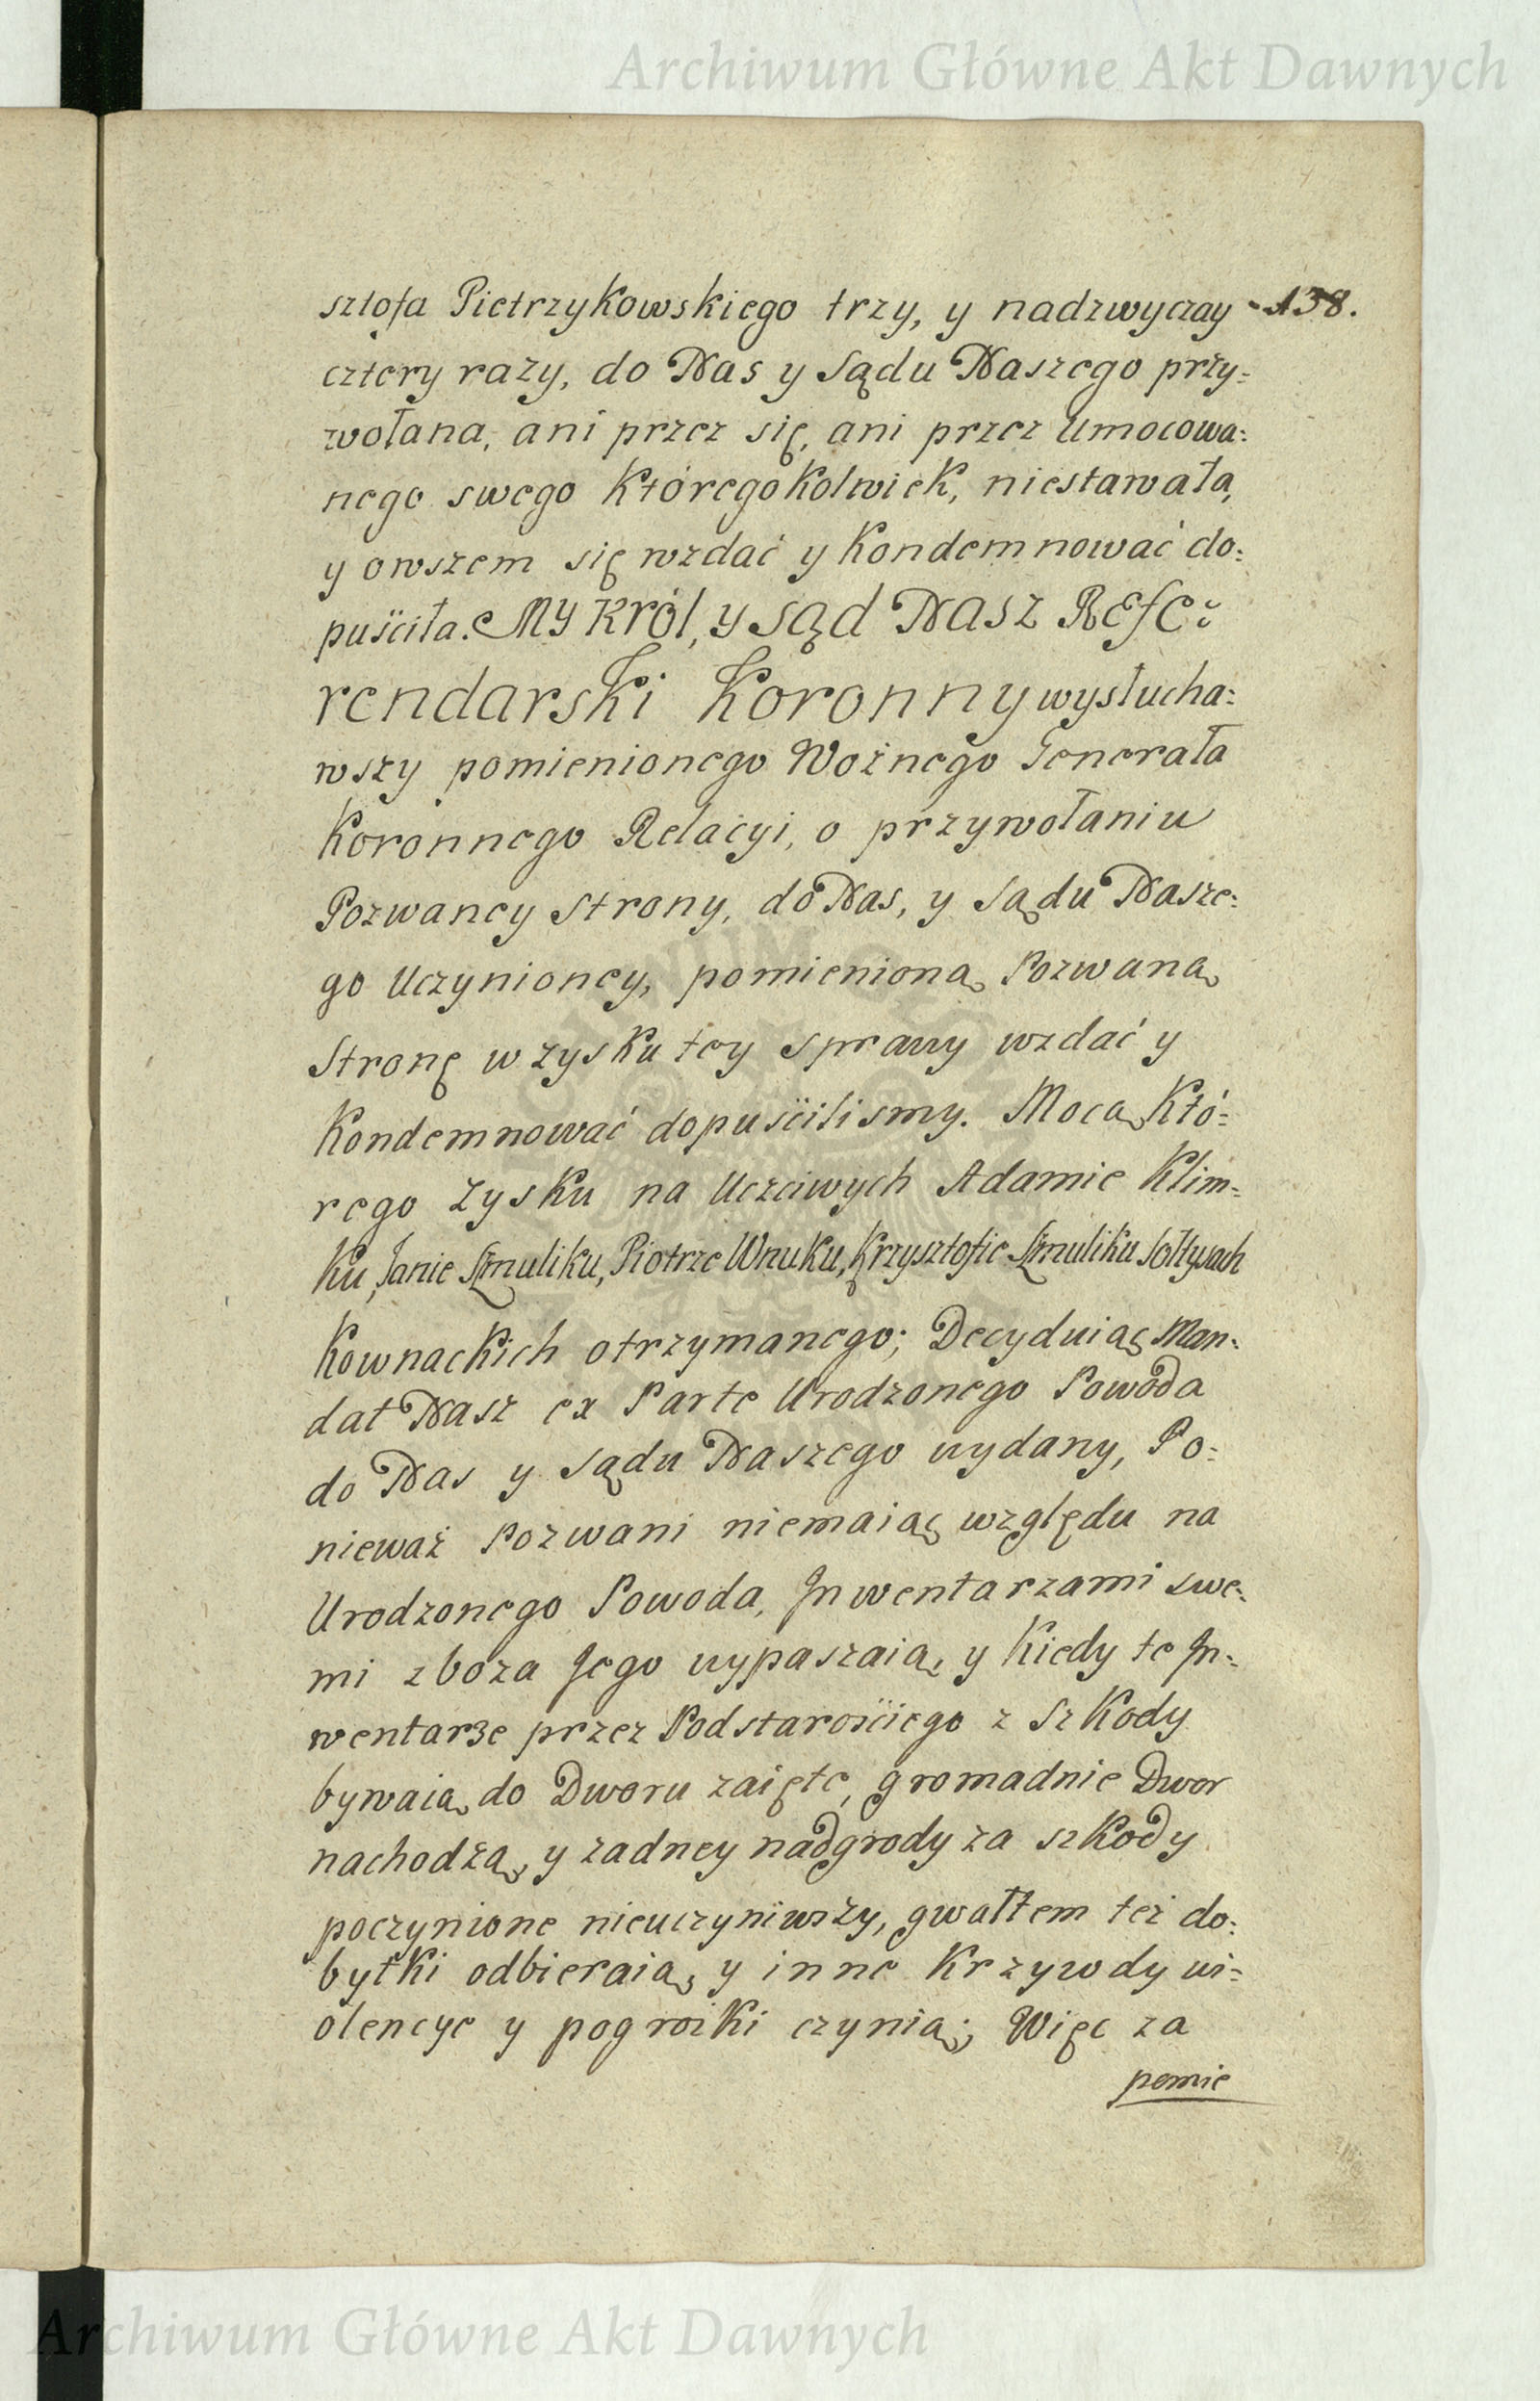 Archiwum Główne Akt Dawnych
sztofa Pietrzykowskiego trzy, y nadzwyczay - 138.
cztery razy, do Nas y Sądu Naszego przy=
wołana, ani przez się, ani przez Umocowa=
nego swego któregokolwiek, niestawała,
y owszem się wzdać y kondemnować do=
puściła. My Król, y Sąd Nasz Refe=
rendarski Koronny wysłucha=
wszy pomienionego Woźnego Generała
Koronnego Relacyi, o przywołaniu
Pozwaney Strony, do Nas, y Sądu Nasze=
go Uczynioney, pomienioną Pozwaną
Stronę w zysku tey sprawy wzdać y
Kondemnować dopuścilismy. Mocą Któ=
rego Zysku na Uczciwych Adamie Klim=
ku, Janie Szmuliku, Piotrze Wnuku, Krzysztofie Szmuliku Sołtysach
Kownackich otrzymanego; Decyduiąc Man=
dat Nasz ex Parte Urodzonego Powoda
do Nas y Sądu Naszego wydany, Po=
nieważ Pozwani niemaiąc względu na
Urodzonego Powoda, Inwentarzami swe=
mi zboża Jego wypaszaią, y kiedy te In=
wentarze przez Podstarościego z Szkody
bywaią do Dworu zaięte, gromadnie Dwor
nachodzą, y żadney nadgrody za szkody
poczynione nieuczyniwszy, gwałtem też do=
bytki odbieraią, y inne Krzywdy wi=
olencye y pogrozki czynią; Więc za
pomie
Archiwum Główne Akt Dawnych